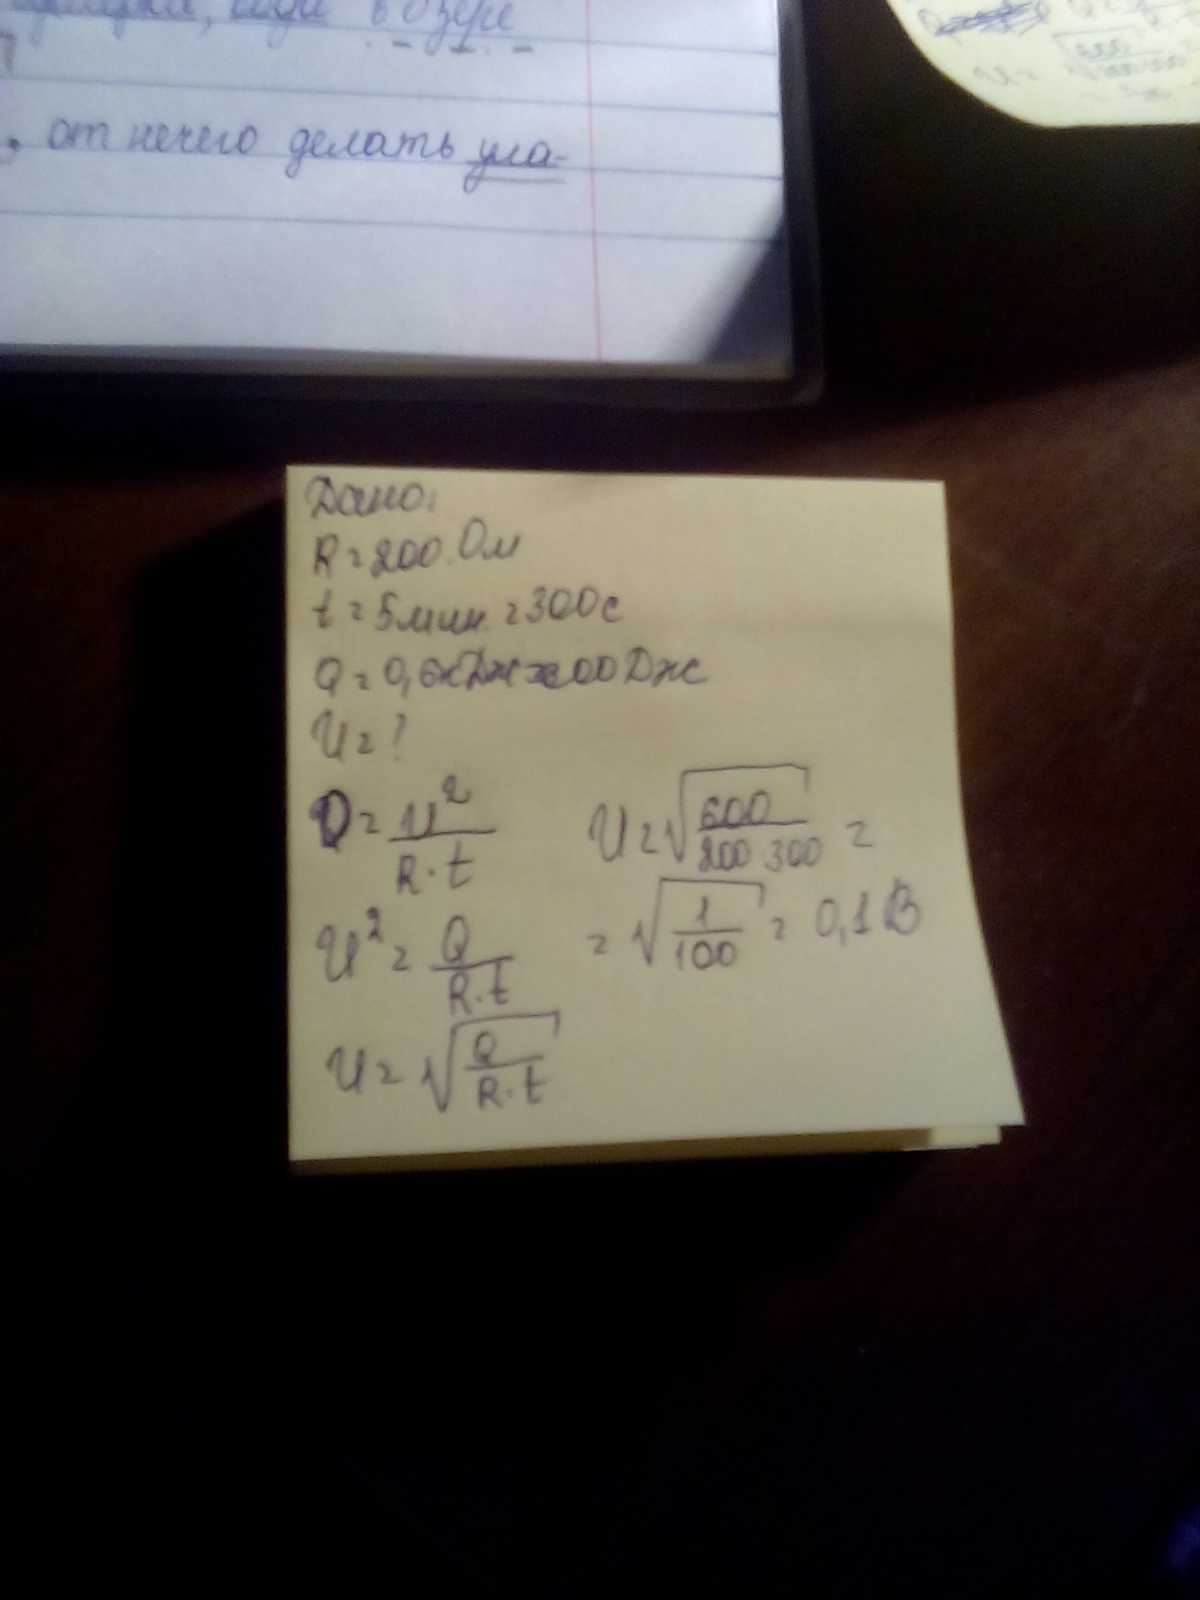 в озере
от нечего делать ула-
Дано:
R = 200 Ом
t = 5 мин. = 300 с
Q = 0,6 кДж = 600 Дж
U = ?
Q = U² / R · t
U² = Q / R · t
U = √(Q / R · t)
U = √(600 / 200 · 300) =
= √(1 / 100) = 0,1 В